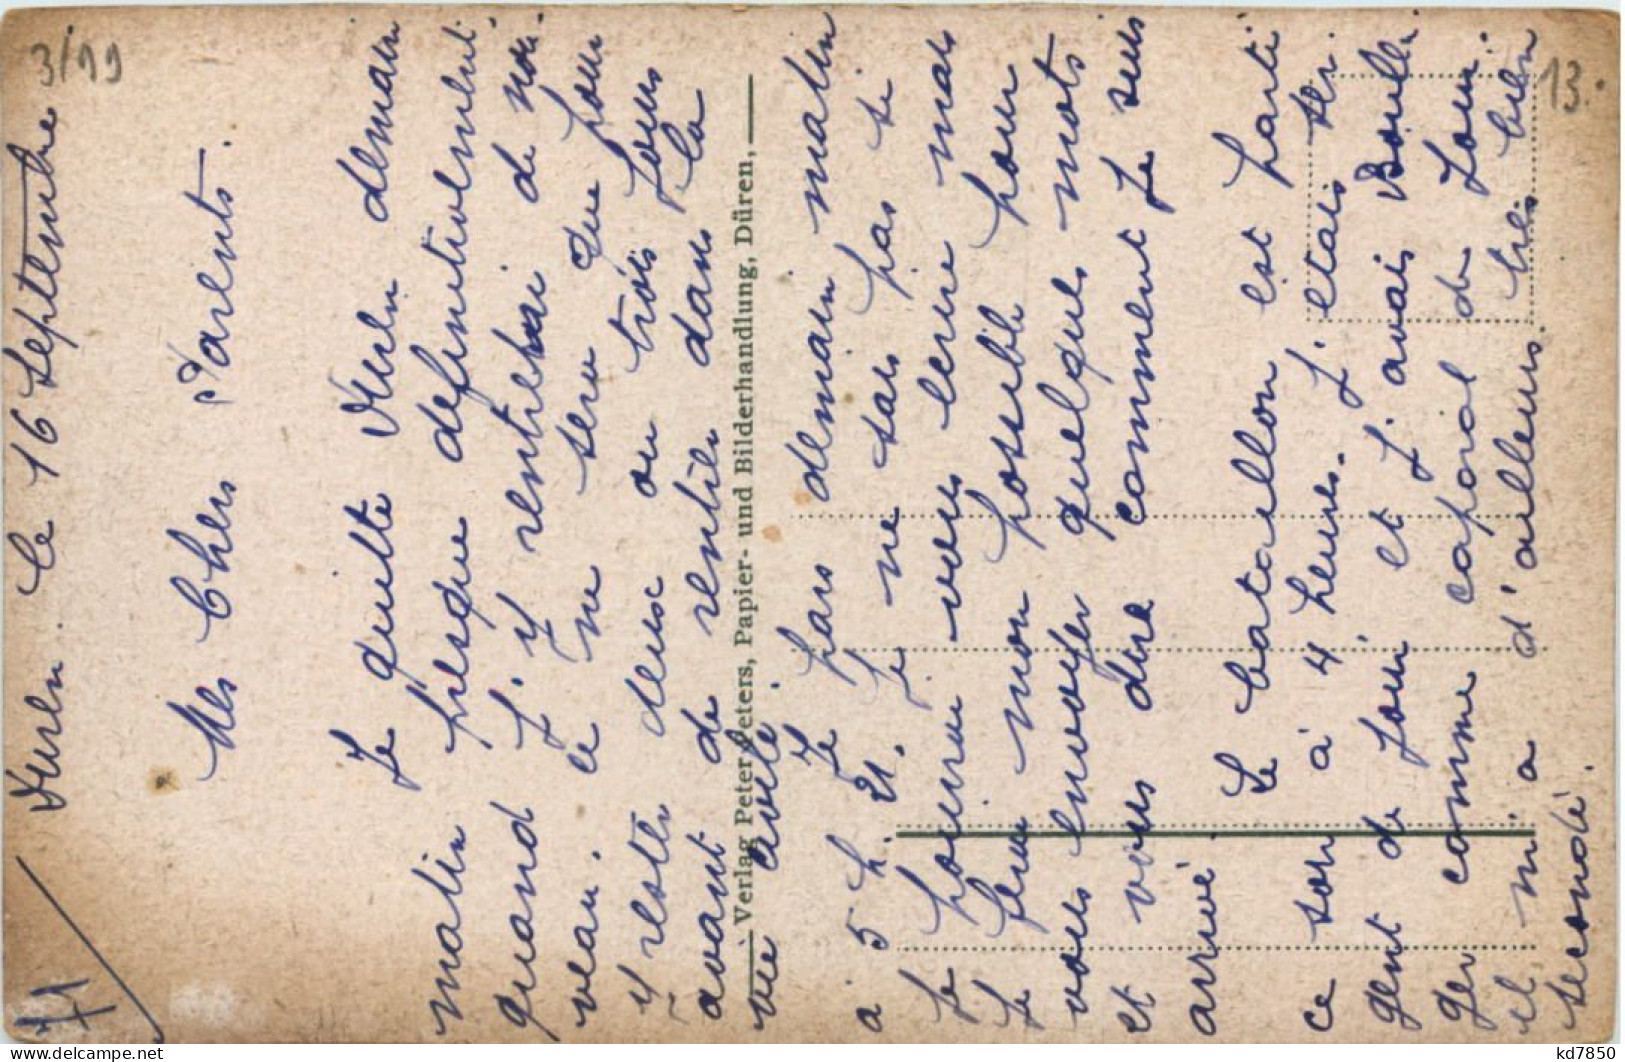 71
3/99
13.
Duren. le 16 Septembre
Mes Chers Parents.
Je quitte Duren demain
matin presque definitivement
quand j'y rentrerai de nou-
veau. ce ne sera que pour
y rester deux ou trois jours
avant de rentrer dans la
Verlag Peter Peters, Papier- und Bilderhandlung, Düren,
Je pars demain matin
a 5 h. 21. Je ne sais pas si
je pourrai vous ecrire mais
je ferai mon possible pour
vous envoyer quelques mots
et vous dire comment je suis
arrivé. Le bataillon est parti
ce soir à 4 heures. J'etais ser-
gent de jour et j'avais Boulli
ger comme caporal de jour.
il m'a d'ailleurs très bien
secondé.
kd7850